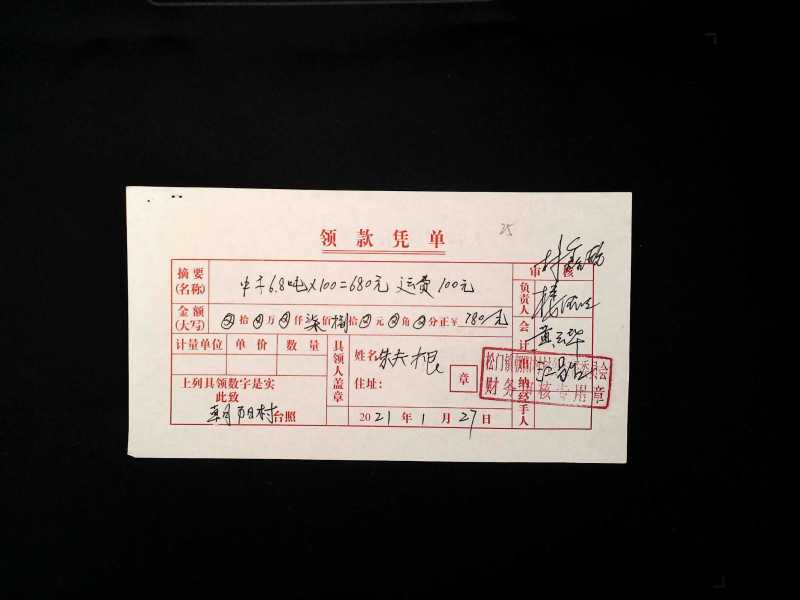 25
领款凭单
摘要(名称) 6.8吨×100=680元 运费100元
审核
金额(大写) ⊗拾⊗万⊗仟柒佰捌拾⊗元⊗角⊗分正¥780/元
负责人
会计
黄云华
出纳
经手人
计量单位 单价 数量
具领人盖章
姓名 朱夫根
住址:
章
上列具领数字是实
此致
村台照
2021年1月27日
松门镇
财务审核专用章